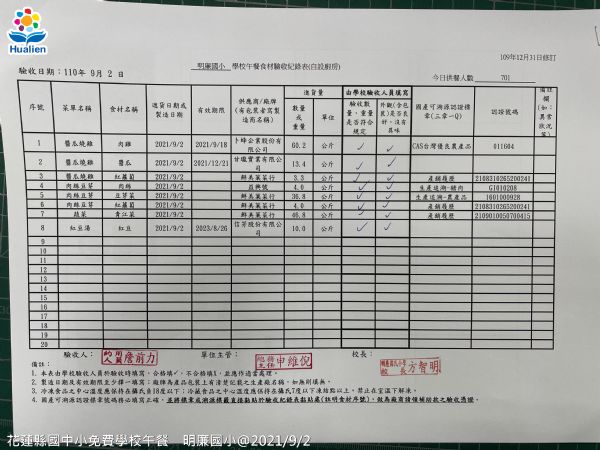 Hualien
109年12月31日修訂
明廉國小 學校午餐食材驗收紀錄表(自設廚房)
驗收日期：110年 9月 2 日
今日供餐人數 701
序號 菜單名稱 食材名稱 進貨日期或製造日期 有效期限 供應商/廠牌(有包裝者寫製造商名稱) 進貨量 數量或重量 單位 由學校驗收人員填寫 驗收數量、重量是否符合規定 外觀(含包裝)是否良好，沒有異味 國產可溯源認證標章(三章一Q) 認證號碼 備註欄(如：異常狀況等)
1 醬瓜燒雞 肉雞 2021/9/2 2021/9/18 卜蜂企業股份有限公司 60.2 公斤 ✓ ✓ CAS台灣優良農產品 011604
2 醬瓜燒雞 醬瓜 2021/9/2 2021/12/21 甘瓏實業有限公司 13.4 公斤 ✓ ✓
3 醬瓜燒雞 紅蘿蔔 2021/9/2 鮮美菓菜行 3.3 公斤 ✓ ✓ 產銷履歷 2108310265200241
4 肉絲豆芽 肉絲 2021/9/2 益興號 4.0 公斤 ✓ ✓ 生產追溯-豬肉 G1010208
5 肉絲豆芽 豆芽菜 2021/9/2 鮮美菓菜行 36.8 公斤 ✓ ✓ 生產追溯-農產品 1601000928
6 肉絲豆芽 紅蘿蔔 2021/9/2 鮮美菓菜行 4.0 公斤 ✓ ✓ 產銷履歷 2108310265200241
7 蔬菜 青江菜 2021/9/2 鮮美菓菜行 46.8 公斤 ✓ ✓ 產銷履歷 2109010050700415
8 紅豆湯 紅豆 2021/9/2 2023/8/26 信芳股份有限公司 10.0 公斤 ✓ ✓
9
10
11
12
13
14
15
16
17
18
19
20
驗收人： 約用人員 詹前力 單位主管： 總務主任 申維倪 校長： 校長 方智明
備註：
1. 本表由學校驗收人員於驗收時填寫，合格填✓，不合格填X，並應作適當處理。
2. 製造日期及有效期限至少擇一填寫；廠牌為產品包裝上有清楚記載之生產廠名稱，如無則填無。
3. 冷凍食品之中心溫度應保持在攝氏負18度以下；冷藏食品之中心溫度應保持在攝氏7度以下凍結點以上，禁止在室溫下解凍。
4. 國產可溯源認證標章號碼務必填寫正確，並將標章或溯源標籤直接黏貼於驗收紀錄表黏貼處(註明食材序號)，做為廠商請領補助款之驗收憑證。
花蓮縣國中小免費學校午餐 明廉國小@2021/9/2